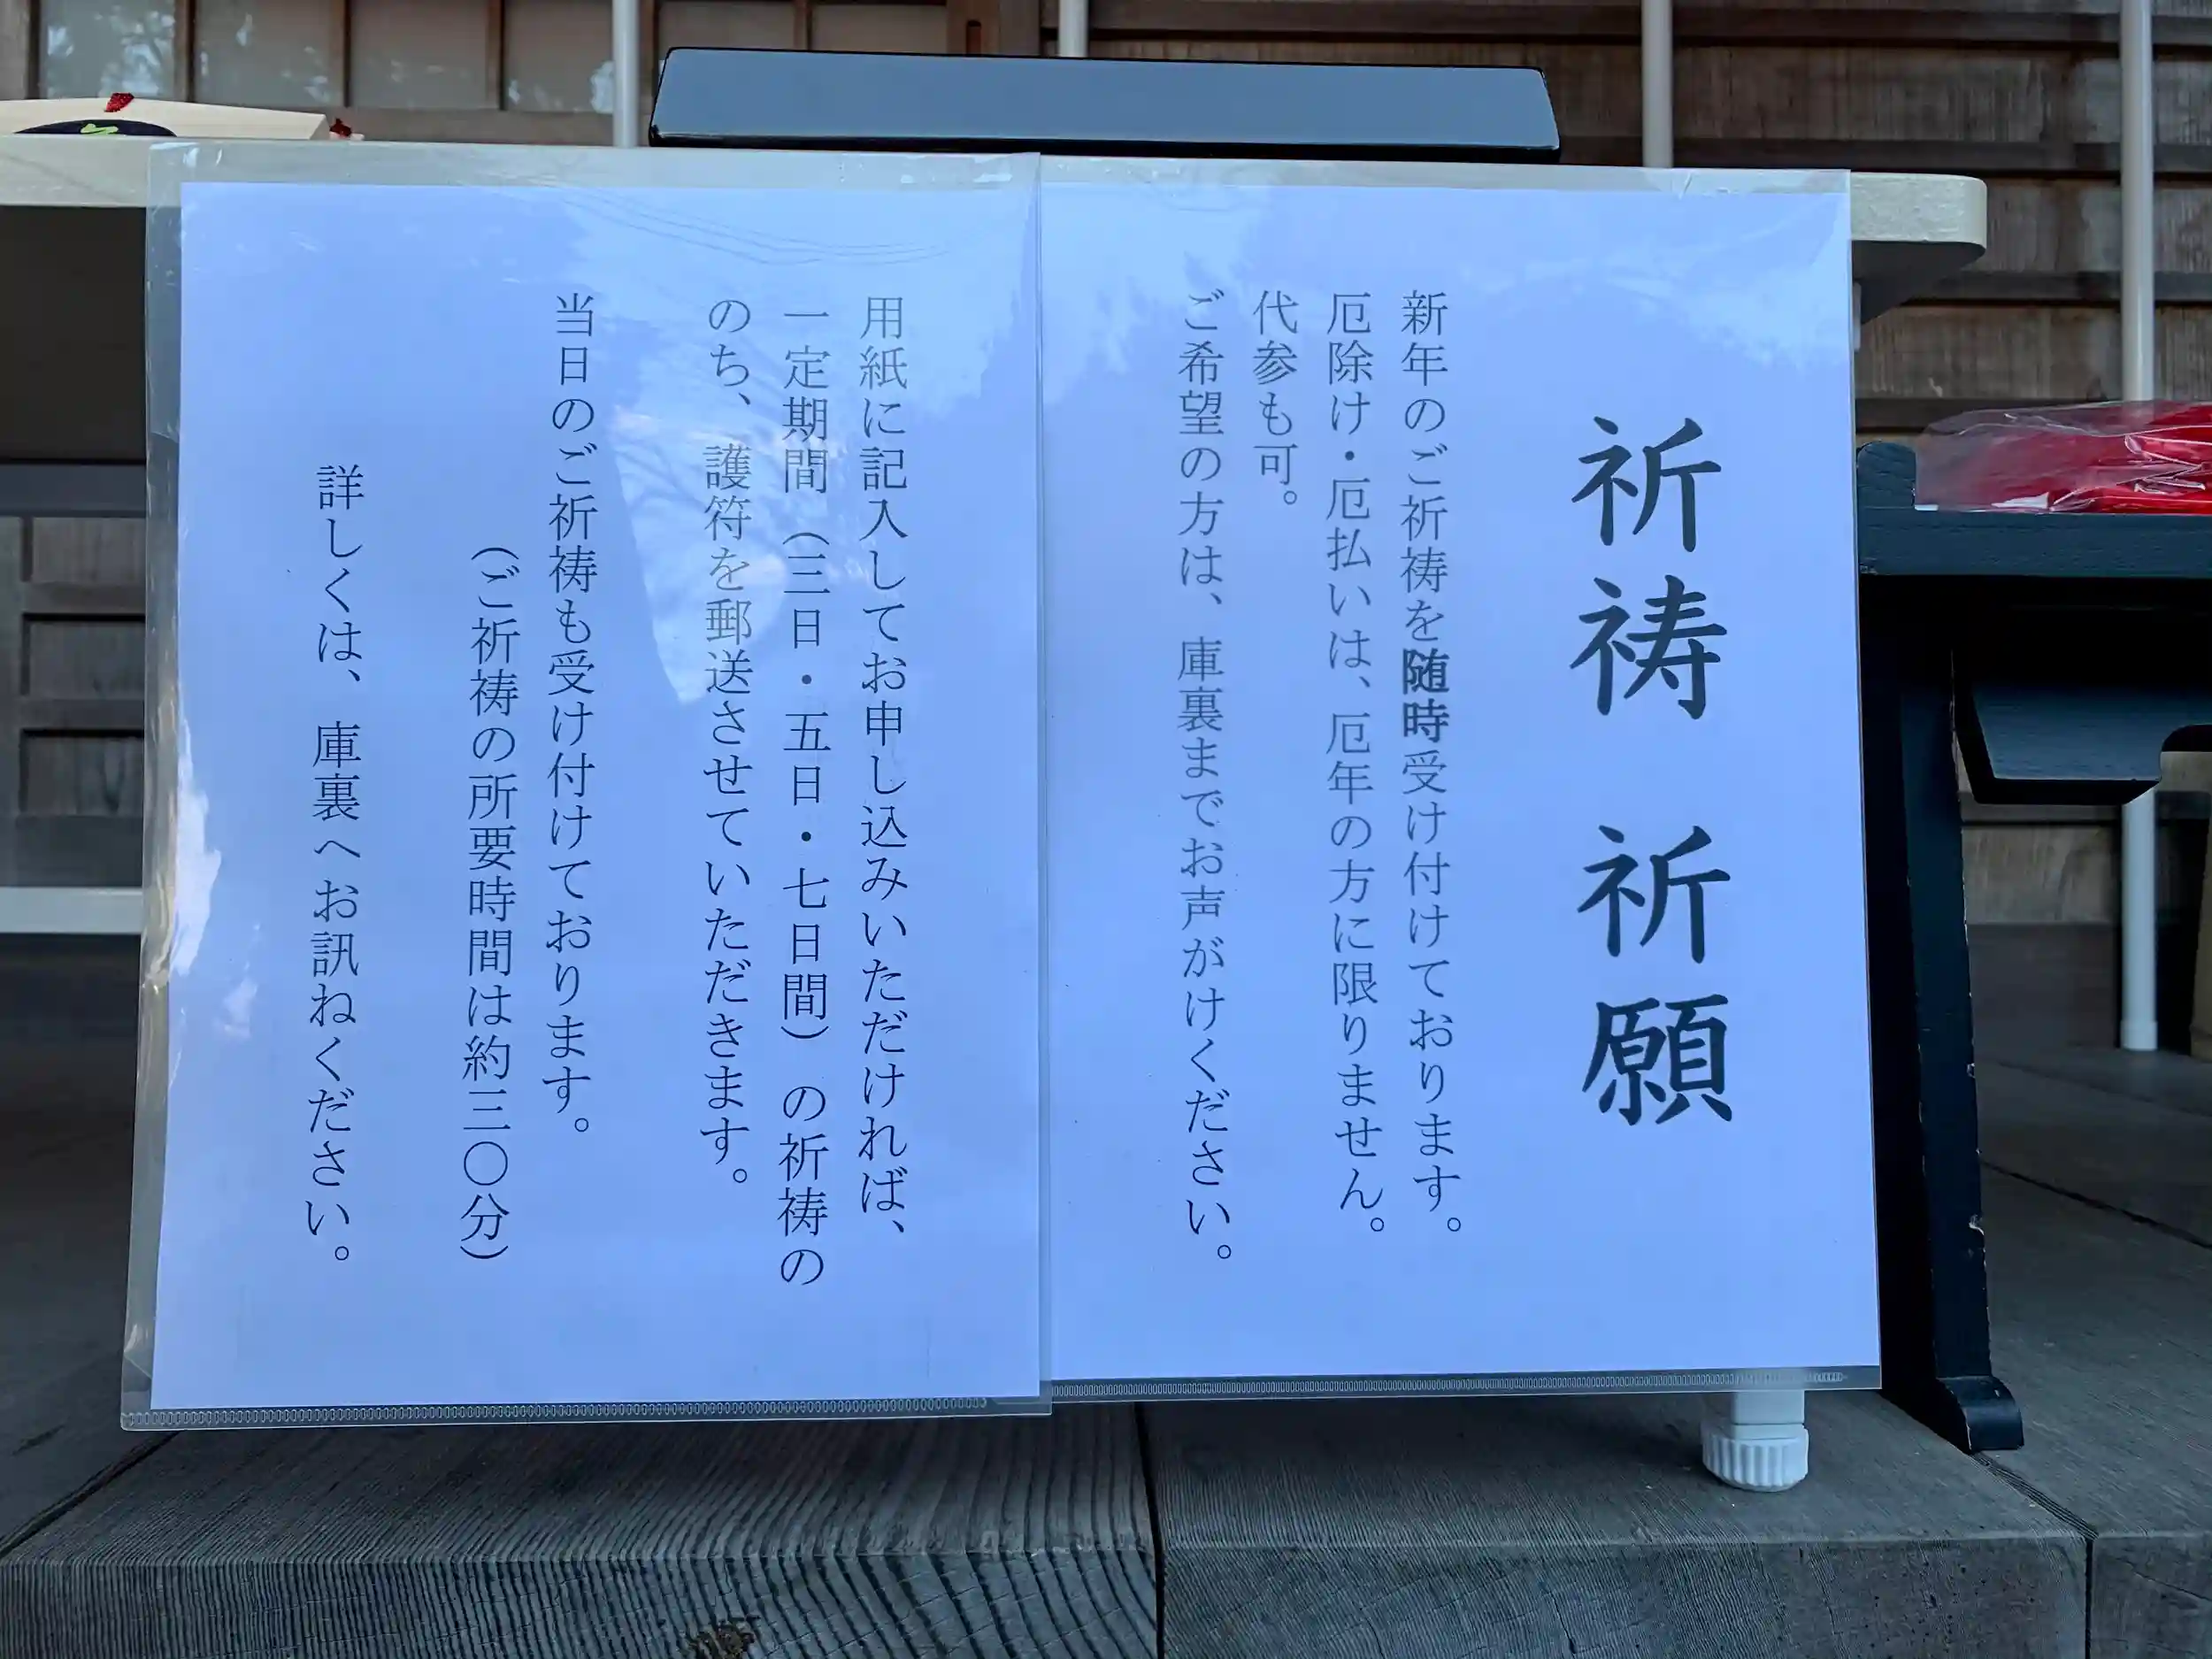 祈祷 祈願
新年のご祈祷を随時受け付けております。
厄除け・厄払いは、厄年の方に限りません。
代参も可。
ご希望の方は、庫裏までお声がけください。
用紙に記入してお申し込みいただければ、
一定期間（三日・五日・七日間）の祈祷の
のち、護符を郵送させていただきます。
当日のご祈祷も受け付けております。
（ご祈祷の所要時間は約三〇分）
詳しくは、庫裏へお訊ねください。